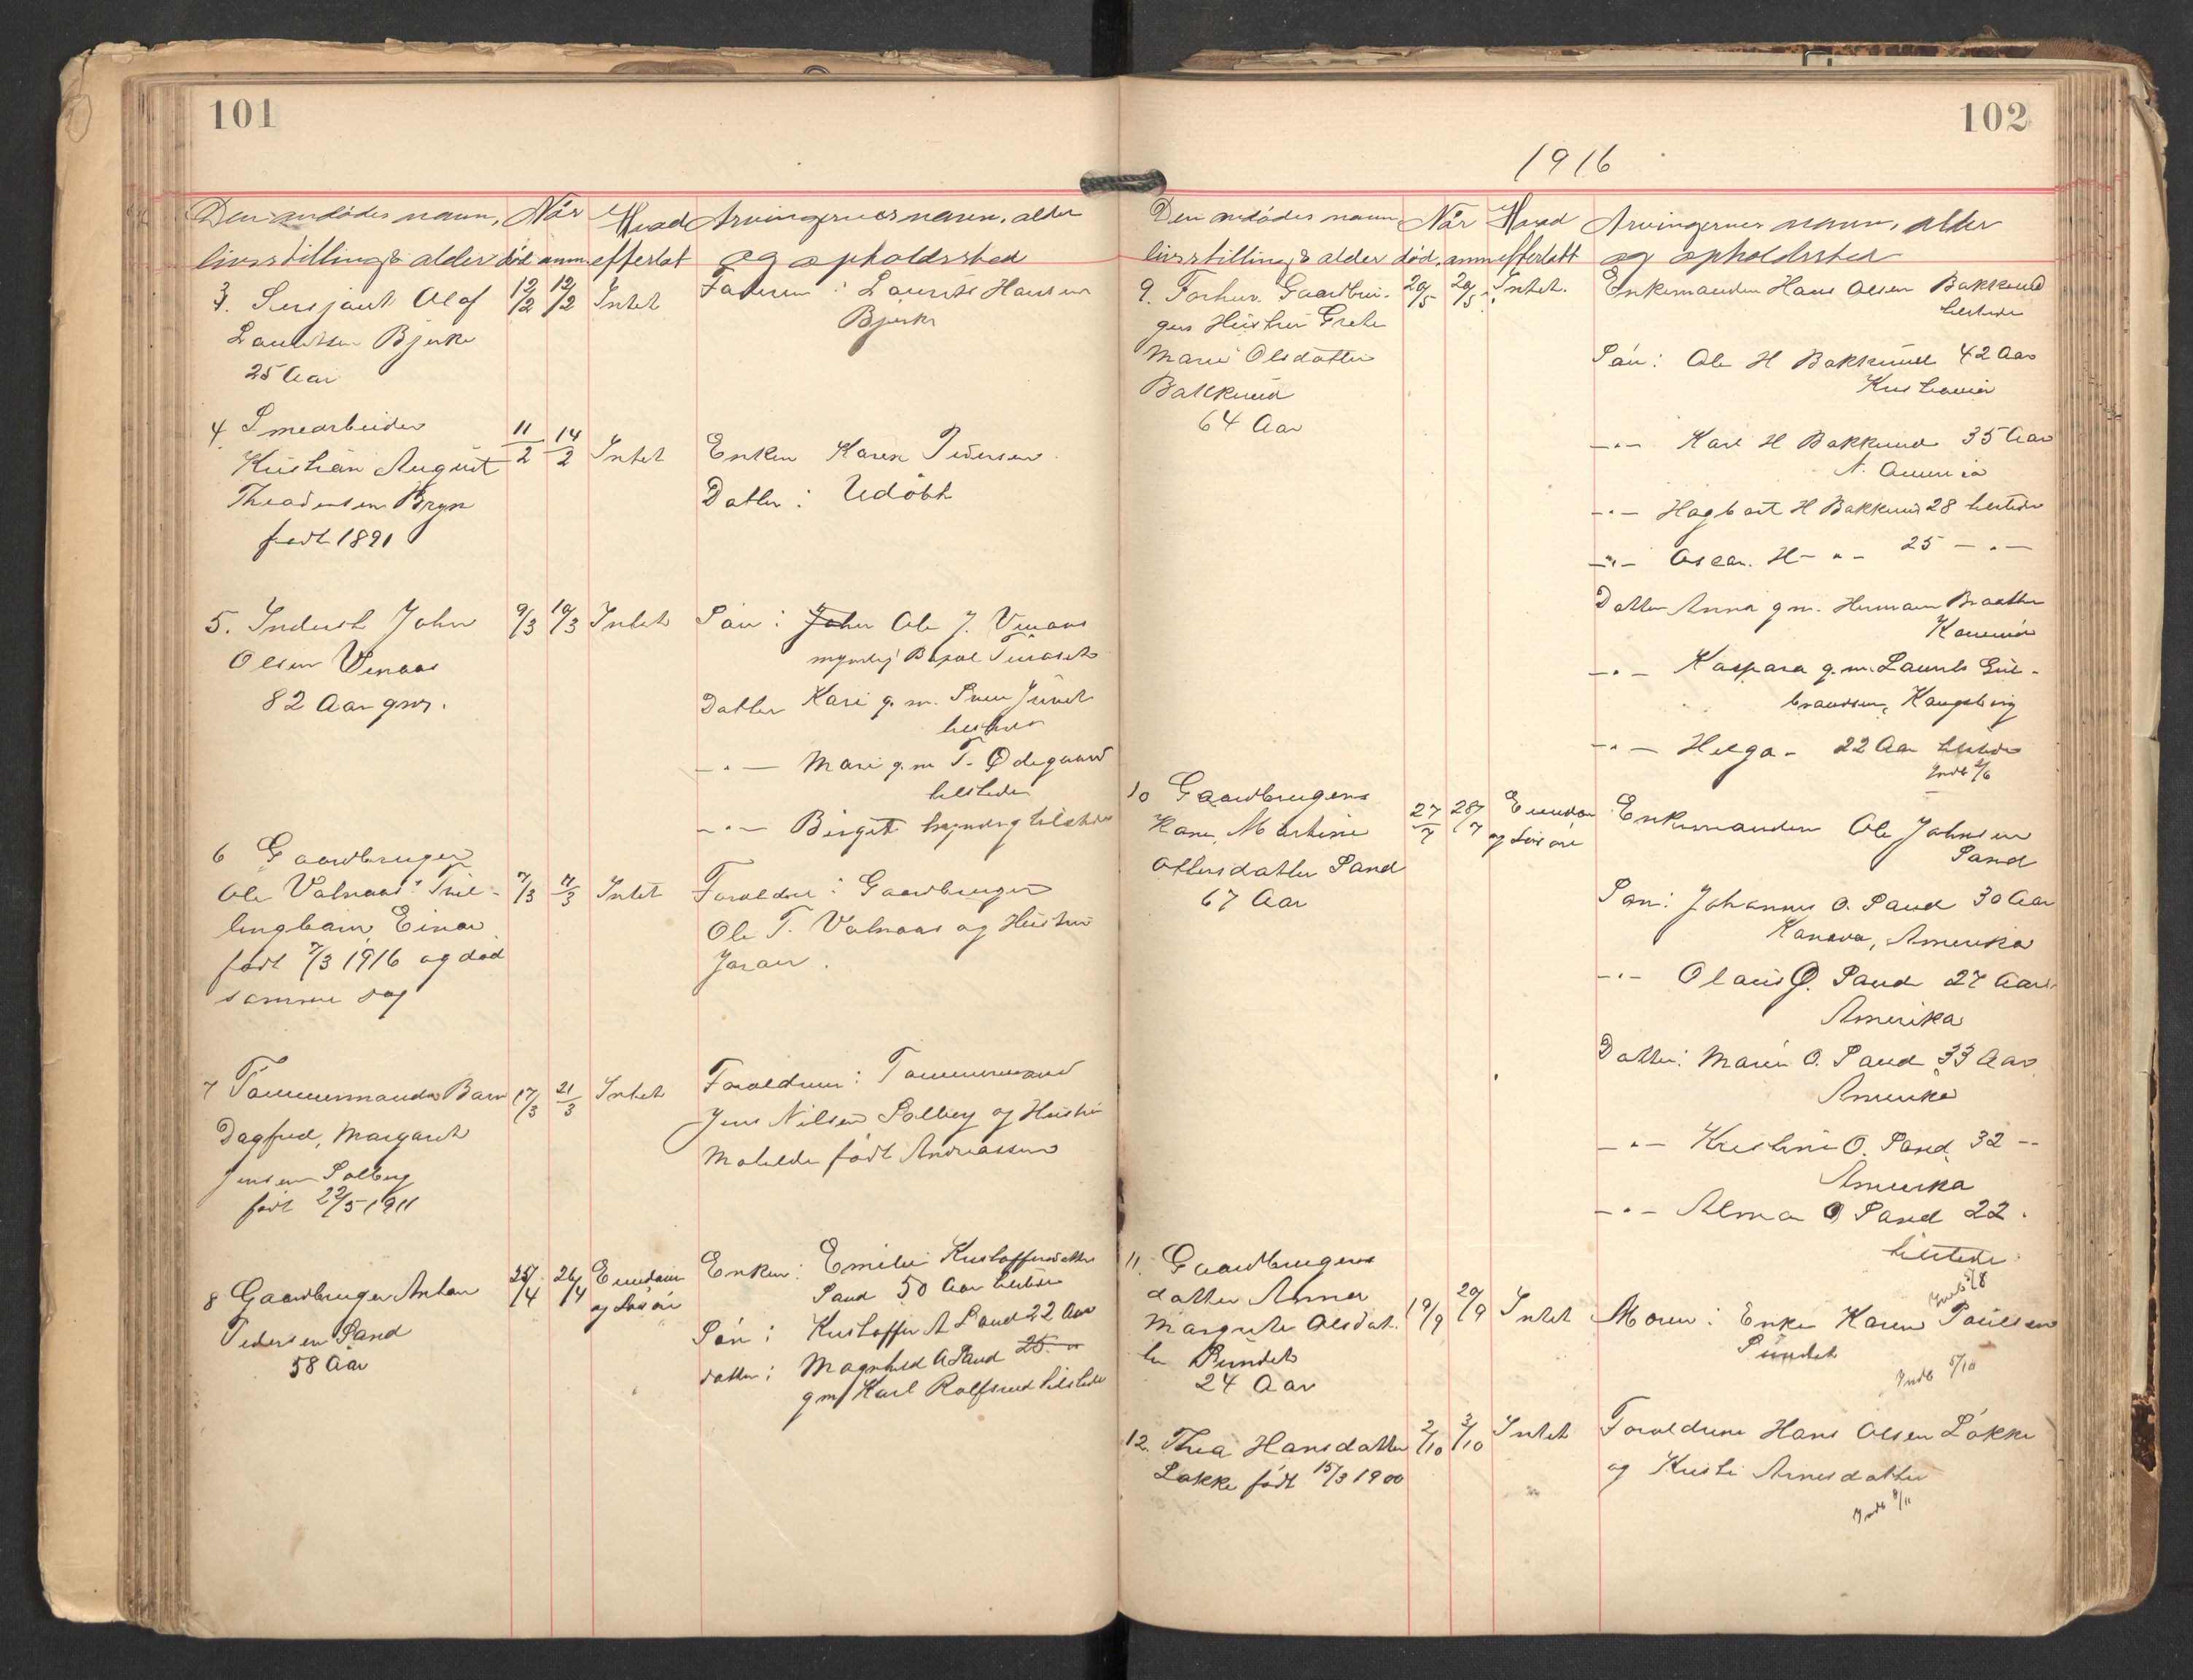 101
Den avdødes navn, Når Hvad Arvingernes navn, alder
livsstilling & alder død anm. efterlot og opholdssted
3. Sersjant Olaf 12/2 12/2 Intet Faderen : Laurits Hansen
Lauritsen Bjerke Bjerke
25 Aar
4. Smearbeider 11/2 14/2 Intet Enken Karen Pedersen
Kristian August Datter : Udöbt
Theodorsen Bryn
født 1891
5. Inderst John 9/3 10/3 Intet Sön : John Ole J. Venaas
Olsen Venaas myndig
82 Aar gmr. Datter Kari g. m.
tilstede
— " — Mari g. m. T. Ødegaard
tilstede
— " — Birgit myndig tilstede
6 Gaardbruger
Ole Valnaas Tvil- 7/3 11/3 Intet Foreldre : Gaardbruger
lingbarn Einar Ole T. Valnaas og Hustru
født 7/3 1916 og død Joran.
samme dag
7 Tømmermands Barn 17/3 21/3 Intet Foreldrene : Tømmermand
Dagfred, Margareth Jens Nilsen Solberg og Hustru
Jensen Solberg Matilde født Andreassen
født 22/5 1911
8 Gaardbruger Anton 25/4 26/4 Eiendom og Løsøre Enken : Emilie Kristoffersdatter
Pedersen Sand Sand 50 Aar tilstede
58 Aar Sön : Kristoffer A Sand 22 Aar
datter : Magnhild A Sand 25 "
gm/ Karl Rolfsrud tilstede
102
1916
Den avdødes navn Når Hvad Arvingernes navn, alder
livsstilling & alder død. anm efterlatt og opholdssted
9. Forhv. Gaardbru- 20/5 20/5 Intet. Enkemanden Hans Olsen Bakkerud
gers Hustru Grete tilstede
Marie Olsdatter Sön : Ole H Bakkerud 42 Aar
Bakkerud Kristiania
64 Aar
— " — Karl H Bakkerud 35 Aar
N. Amerika
— " — Hagbart H Bakkerud 28 tilstede
— " — Oscar. H — " — 25 — " —
Datter Anna g m. Herman Braathe
— " — Kaspara g. m. Laurits Gul-
brandsen, Kongsberg
— " — Helga — 22 Aar tilstede
Indb 2/6
10 Gaardbrugers 27/7 28/7 Eiendom og Løsøre Enkemanden Ole Johnsen
Kone, Martine Sand
Ottersdatter Sand
67 Aar Sön : Johannes O. Sand 30 Aar
Kanada, Amerika
— " — Olaus O. Sand 27 Aar
Amerika
Datter : Maren O. Sand 33 Aar
Amerika
— " — Kristine O. Sand 32 — "
Amerika
— " — Alma O Sand 22.
tilstede
Indb 5/8
11. Gaardbrugers
datter Anna 19/9 20/9 Intet Moren : Enke Karen Paulsen
Margrete Olsdat- Sundet
ter Sundet Indb 5/10
24 Aar
12. Thea Hansdatter 2/10 3/10 Intet Foreldrene Hans Olsen Løkke
Løkke født 15/3 1900 og Kristi Arnesdatter
Indb 8/11